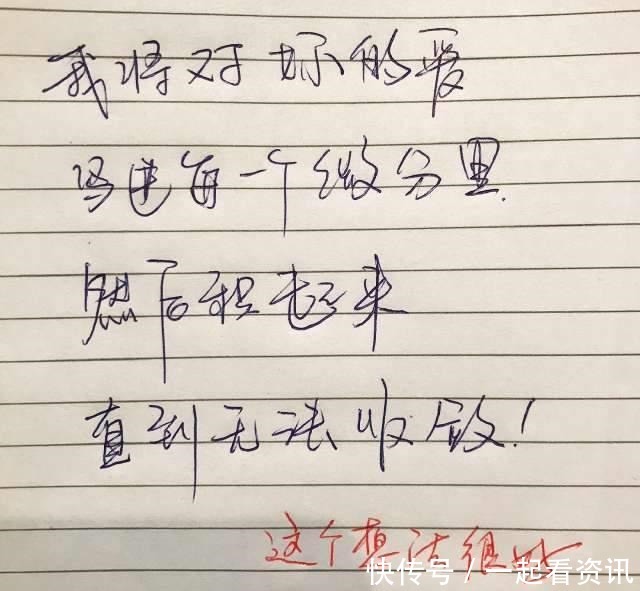 我将对妳的爱
写进每一个微分里
然后积起来
直到无法收敛!
这个想法很妙
快传号 / 一起看资讯